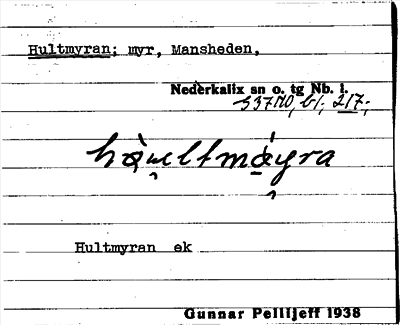 Hultmyran; myr, Mansheden,
Nederkalix sn o. tg Nb. l.
hàueltmáyra
Hultmyran ek
Gunnar Pellijeff 1938